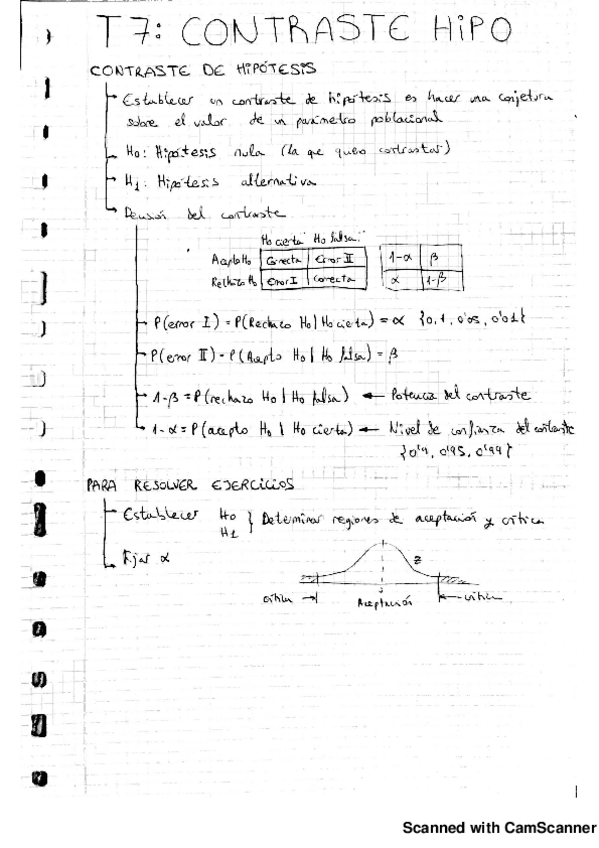 T7: CONTRASTE HIPO
CONTRASTE DE HIPÓTESIS
Establecer un contraste de hipótesis es hacer una conjetura
sobre el valor de un parámetro poblacional
H0: Hipótesis nula (la que quiero contrastar)
H1: Hipótesis alternativa
Decisión del contraste
H0 cierta H0 falsa
Acepto H0 Correcta Error II 1-α β
Rechazo H0 Error I Correcta α 1-β
P(error I) = P(Rechazo H0 | H0 cierta) = α {0,1, 0'05, 0'01}
P(error II) = P(Acepto H0 | H0 falsa) = β
1-β = P(rechazo H0 | H0 falsa) ← Potencia del contraste
1-α = P(acepto H0 | H0 cierta) ← Nivel de confianza del contraste
{0'9, 0'95, 0'99}
PARA RESOLVER EJERCICIOS
Establecer H0 } Determinar regiones de aceptación y crítica
H1
Fijar α
z
crítica → Aceptación ← crítica
1
Scanned with CamScanner